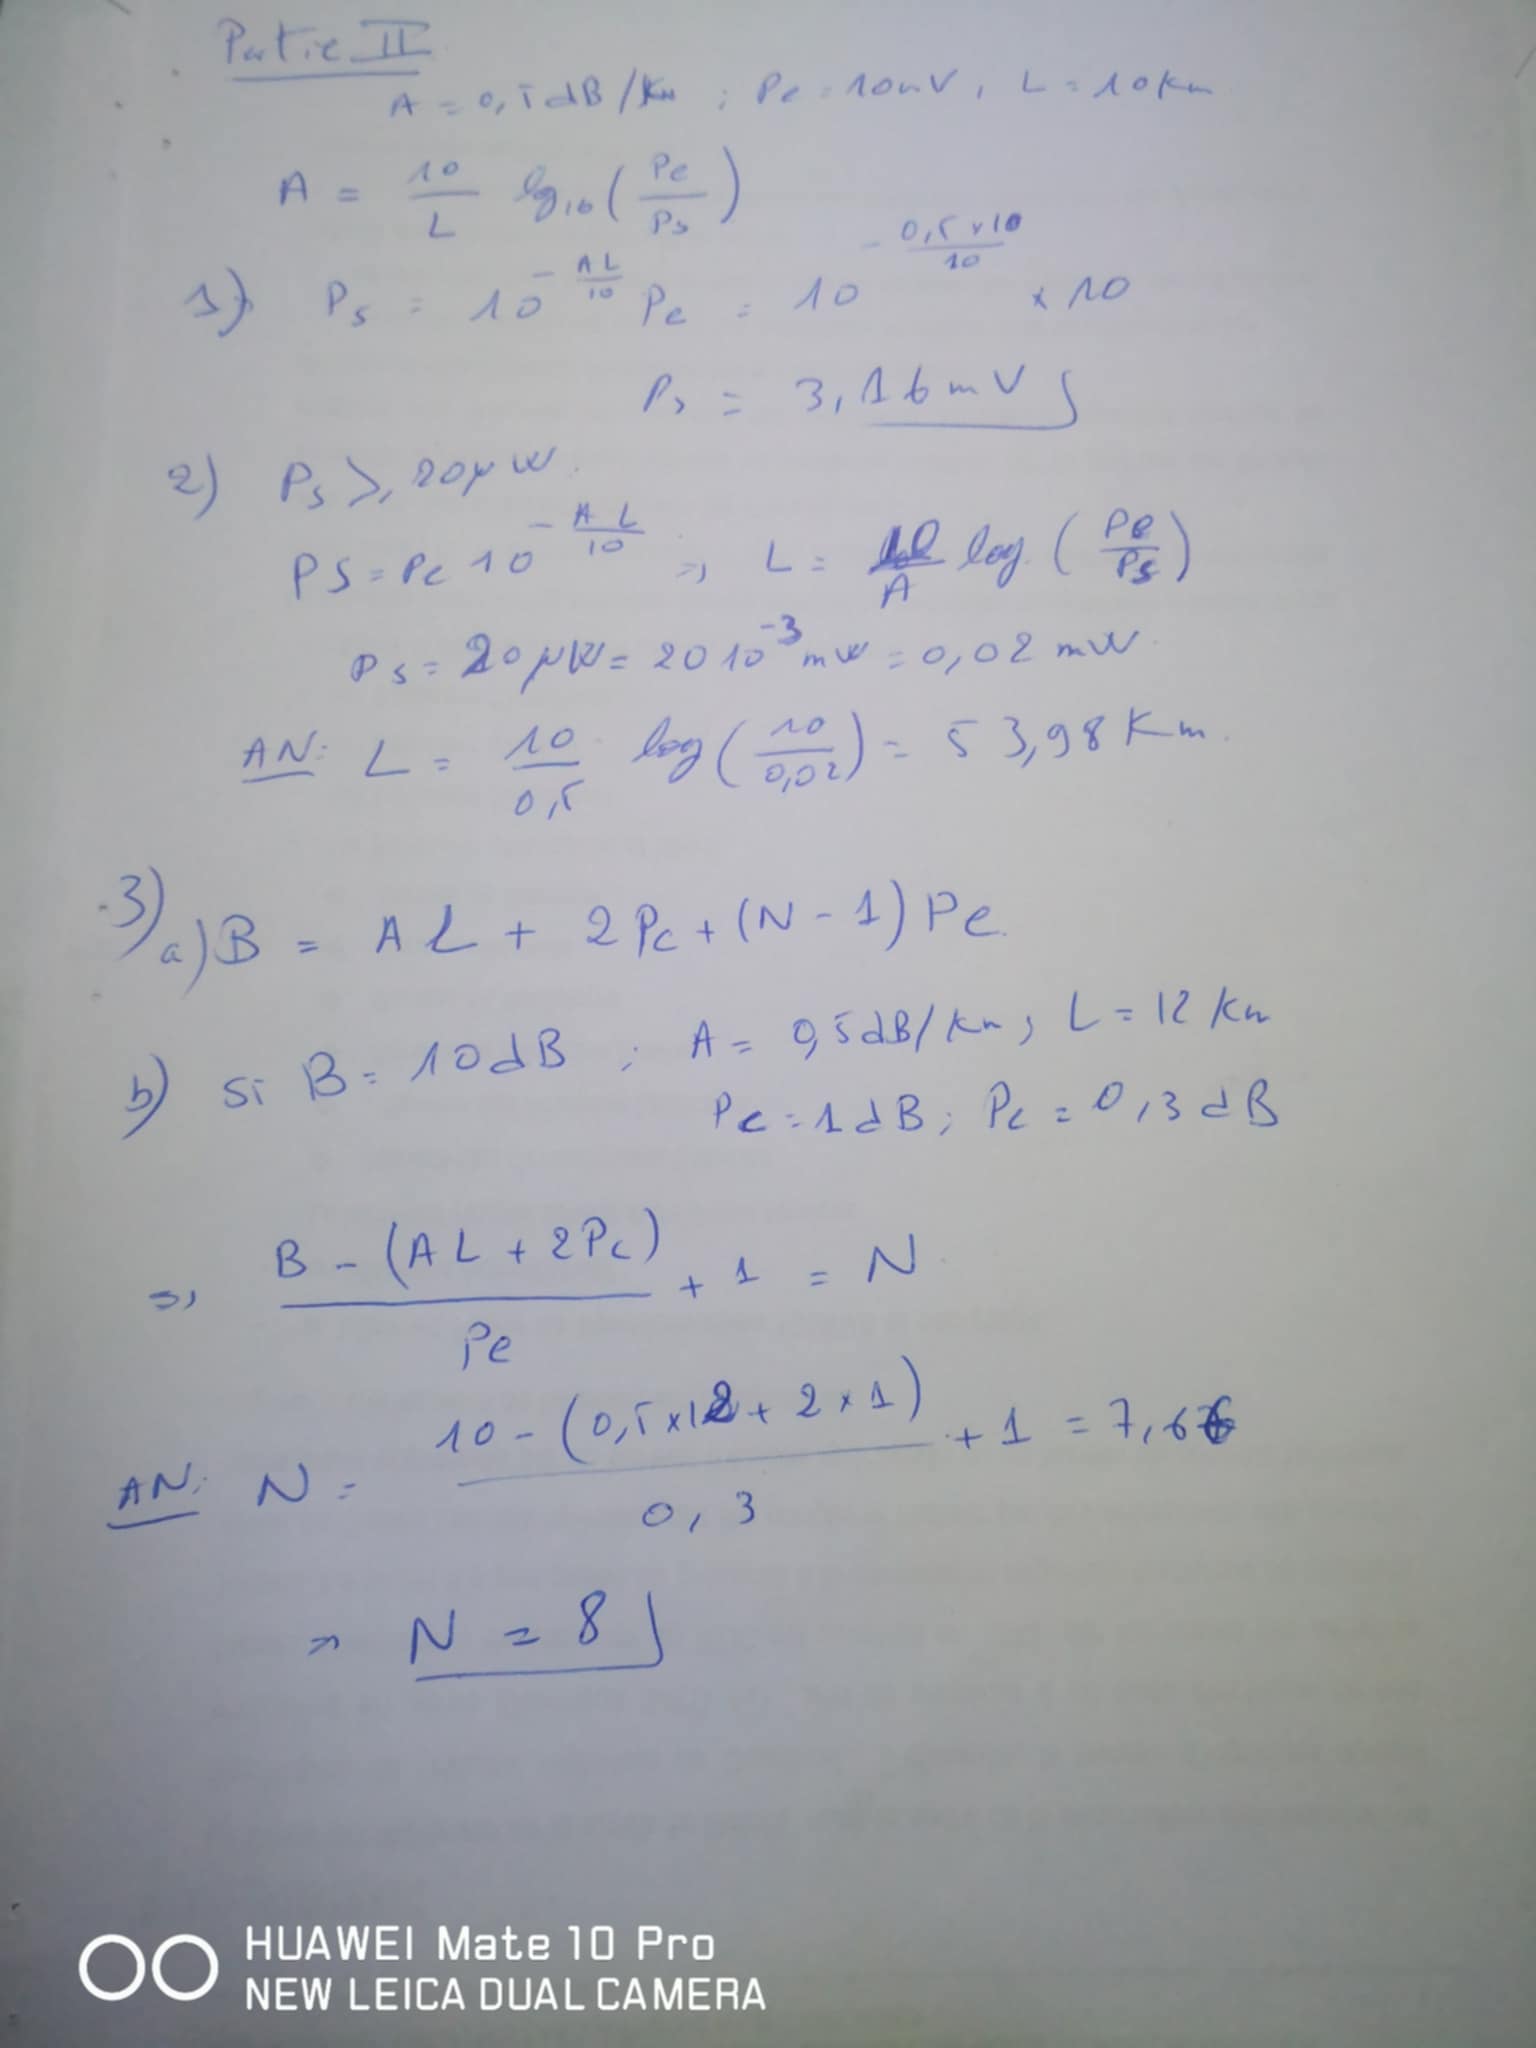 Partie II
A = 0,5 dB/Km ; Pe = 10mV, L = 10km
A = 10/L log10(Pe/Ps)
1) Ps = 10^(-AL/10) Pe = 10^(-0,5x10/10) x 10
Ps = 3,16mV
2) Ps ≥ 20µW.
PS = Pe 10^(-AL/10) => L = 10/A log (Pe/Ps)
Ps = 20µW = 20 10^-3 mW = 0,02 mW
AN: L = 10/0,5 log(10/0,02) = 53,98 Km.
3) a) B = AL + 2Pc + (N-1)Pe.
b) Si B = 10dB ; A = 0,5dB/Km ; L = 12 Km
Pc = 1dB ; Pe = 0,3dB
=> (B - (AL + 2Pc))/Pe + 1 = N
AN: N = (10 - (0,5x12 + 2x1))/0,3 + 1 = 7,66
=> N = 8
HUAWEI Mate 10 Pro
NEW LEICA DUAL CAMERA